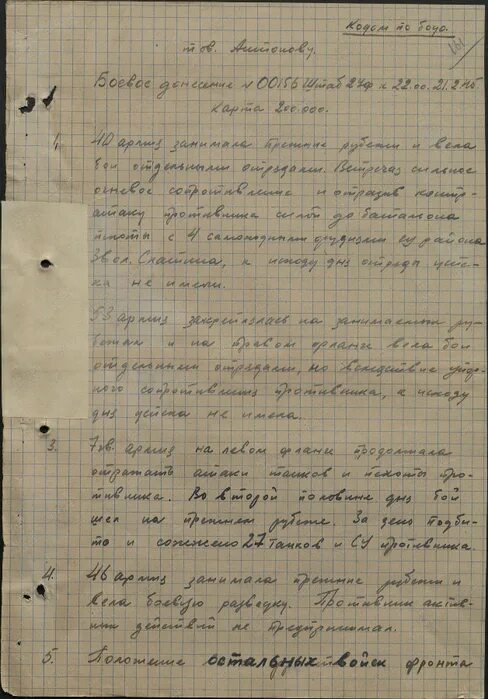 Кодом по бодо.
161
тов. Антонову.
Боевое донесение №00156 Штаб 2УФ к 22.00. 21.2
Карта 200.000.
1. 40 армия занимала прежние рубежи и вела
бои отдельными отрядами. Встречая сильное
огневое сопротивление и отразив контр-
атаку противника силой до батальона
пехоты с 4 самоходными орудиями из района
Звол. Слатина, к исходу дня отряды успе-
ха не имели.
53 армия закрепилась на занимаемых ру-
бежах и на правом фланге вела бои
отдельными отрядами, но вследствие упор-
ного сопротивления противника, к исходу
дня успеха не имела.
3. 7 гв. армия на левом фланге продолжала
отражать атаки танков и пехоты про-
тивника. Во второй половине дня бой
шел на прежнем рубеже. За день подби-
то и сожжено 27 танков и СУ противника.
4. 46 армия занимала прежние рубежи и
вела боевую разведку. Противник актив-
ных действий не предпринимал.
5. Положение остальных войск фронта